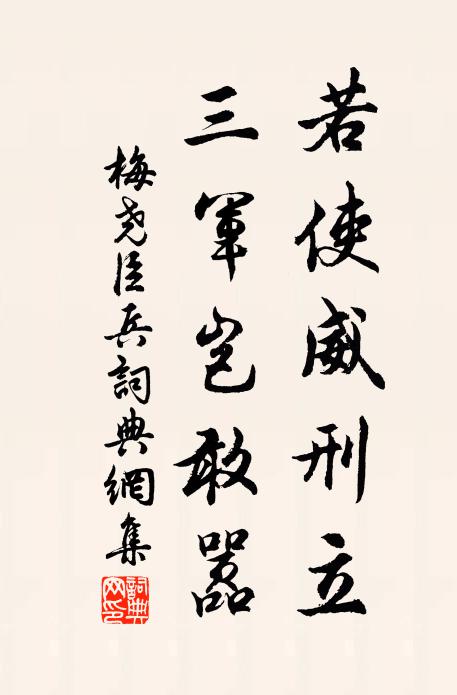 若使威刑立
三軍岂敢嚣
梅尧臣兵詞典網集
詞典网印